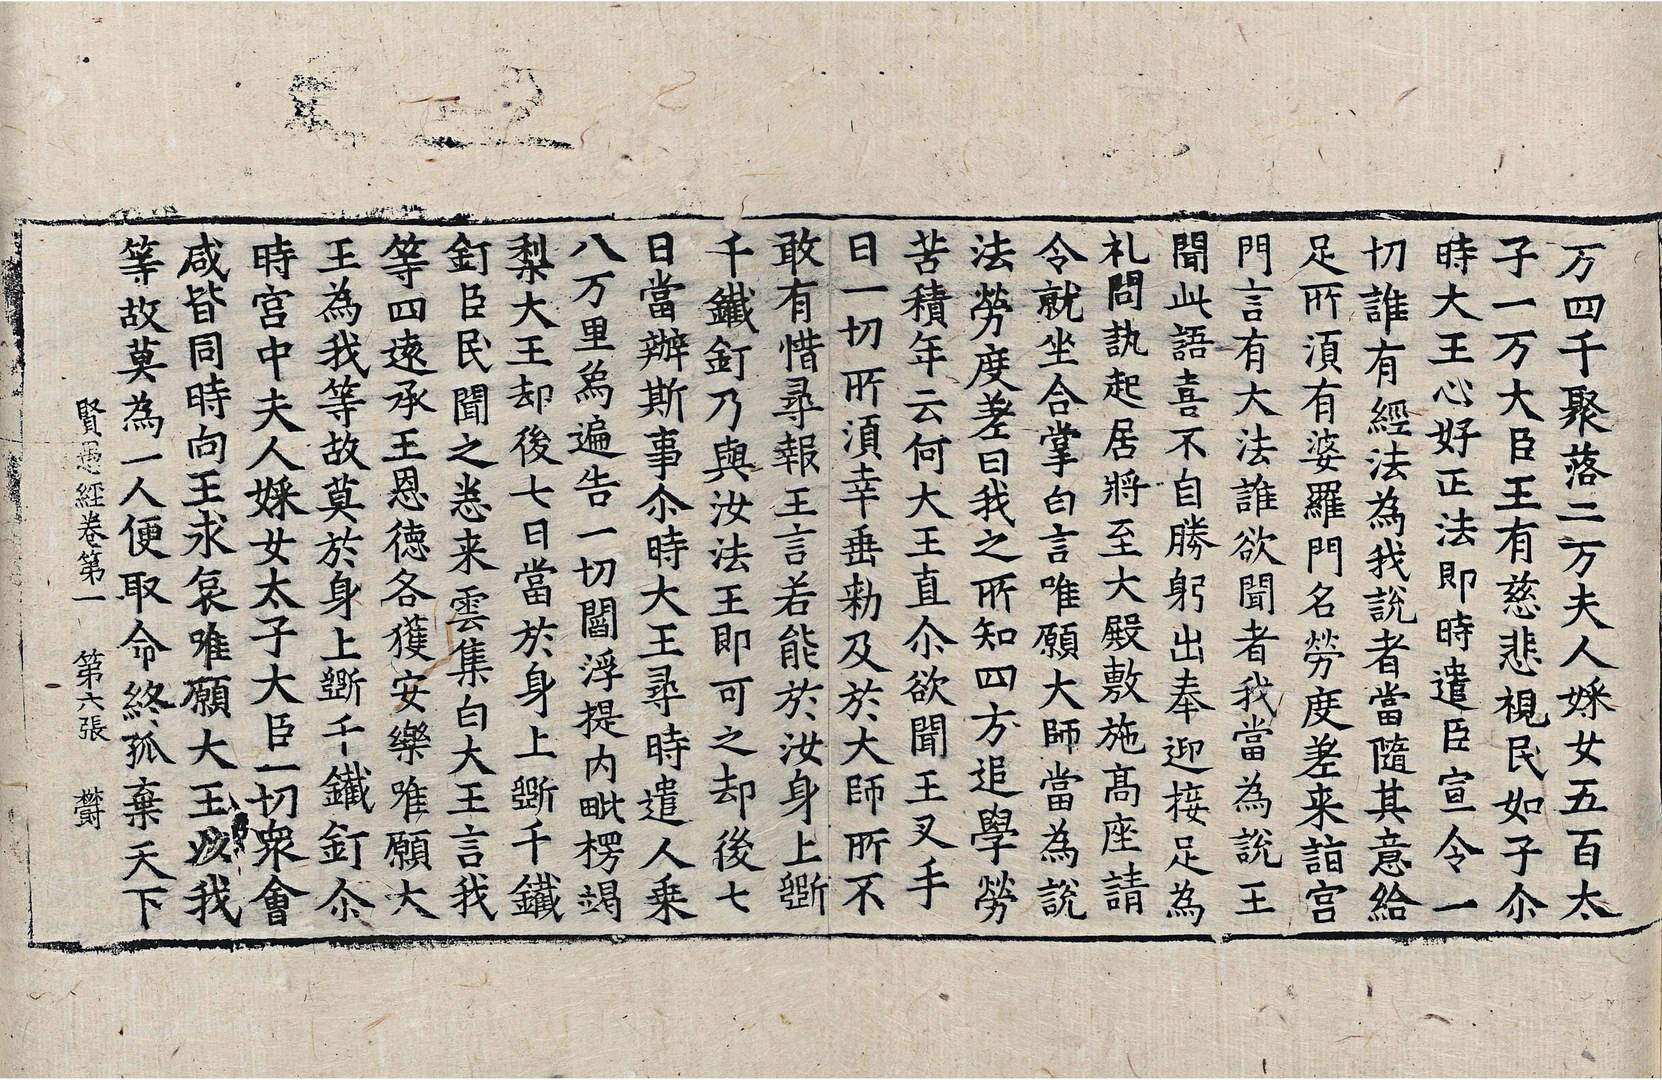 万四千聚落二万夫人婇女五百太
子一万大臣王有慈悲視民如子尒
時大王心好正法即時遣臣宣令一
切誰有經法為我説者當隨其意給
足所須有婆羅門名勞度差来詣宫
門言有大法誰欲聞者我當為説王
聞此語喜不自勝躬出奉迎接足為
礼問訊起居將至大殿敷施髙座請
令就坐合掌白言唯願大師當為説
法勞度差曰我之所知四方追學勞
苦積年云何大王直尒欲聞王叉手
曰一切所須幸垂勑及於大師所不
敢有惜尋報王言若能於汝身上斵
千鐵釘乃與汝法王即可之却後七
日當辦斯事尒時大王尋時遣人乗
八万里象遍告一切閻浮提内毗楞竭
梨大王却後七日當於身上斵千鐵
釘臣民聞之悉来雲集白大王言我
等四逺承王恩德各獲安樂唯願大
王為我等故莫於身上斵千鐵釘尒
時宫中夫人婇女太子大臣一切衆會
咸皆同時向王求哀唯願大王以我
等故莫為一人便取命終孤棄天下
賢愚經卷第一　第六張　欝